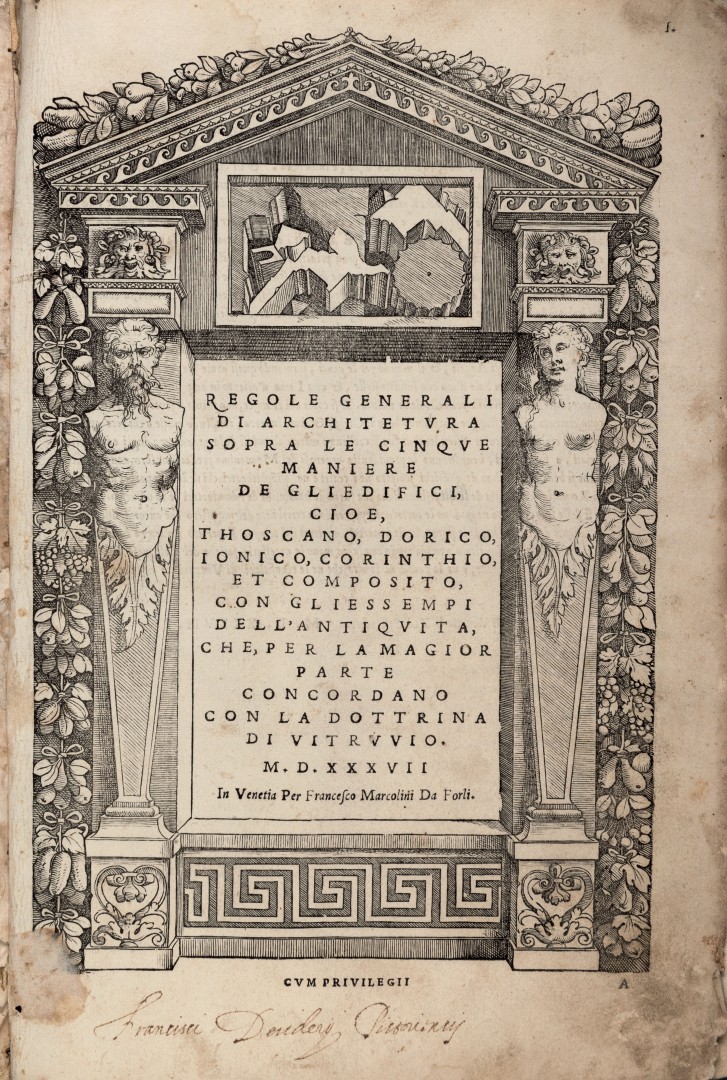 1.
REGOLE GENERALI
DI ARCHITETVRA
SOPRA LE CINQVE
MANIERE
DE GLIEDIFICI,
CIOE,
THOSCANO, DORICO,
IONICO, CORINTHIO,
ET COMPOSITO,
CON GLIESSEMPI
DELL'ANTIQVITA,
CHE, PER LA MAGIOR
PARTE
CONCORDANO
CON LA DOTTRINA
DI VITRVVIO.
M. D. XXXVII
In Venetia Per Francesco Marcolini Da Forli.
CVM PRIVILEGII
A
Francisci